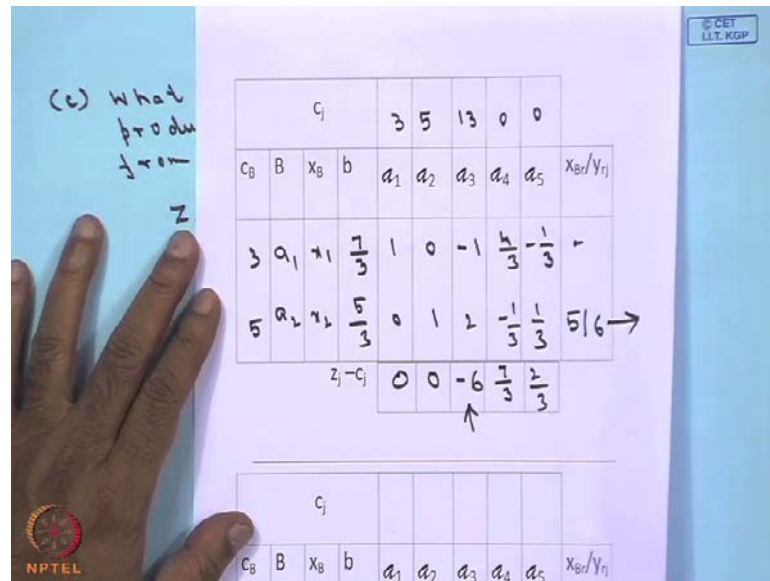 © CET
I.I.T. KGP
(c) What
produ
from
Z
cj 3 5 13 0 0
cB B xB b a1 a2 a3 a4 a5 xBr/yrj
3 a1 x1 7/3 1 0 -1 4/3 -1/3 -
5 a2 x2 5/3 0 1 2 -1/3 1/3 5/6 →
zj -cj 0 0 -6 7/3 2/3
↑
cj
cB B xB b a1 a2 a3 a4 a5 xBr/yrj
NPTEL